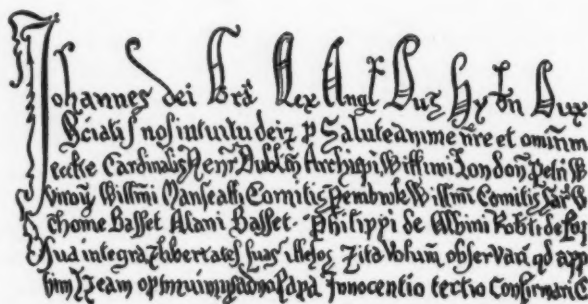 Johannes dei Gra Rex Angl Dns Hybn Dux
Sciatis nos intuitu dei et p Salute anime nre et omnium
eccle Cardinalis Henr Dublin Archiepi, Willimi London Petri W
virory Willmi Marescalli Comitis Pembroke Willmi Comitis Sar
Thome Basset Alani Basset. Philippi de Albini Robti de
sua integra et libertates suas illesas Et ita Volum observari qd app
him Et eam optinuimus a dno Papa Innocentio tertio Confirmari